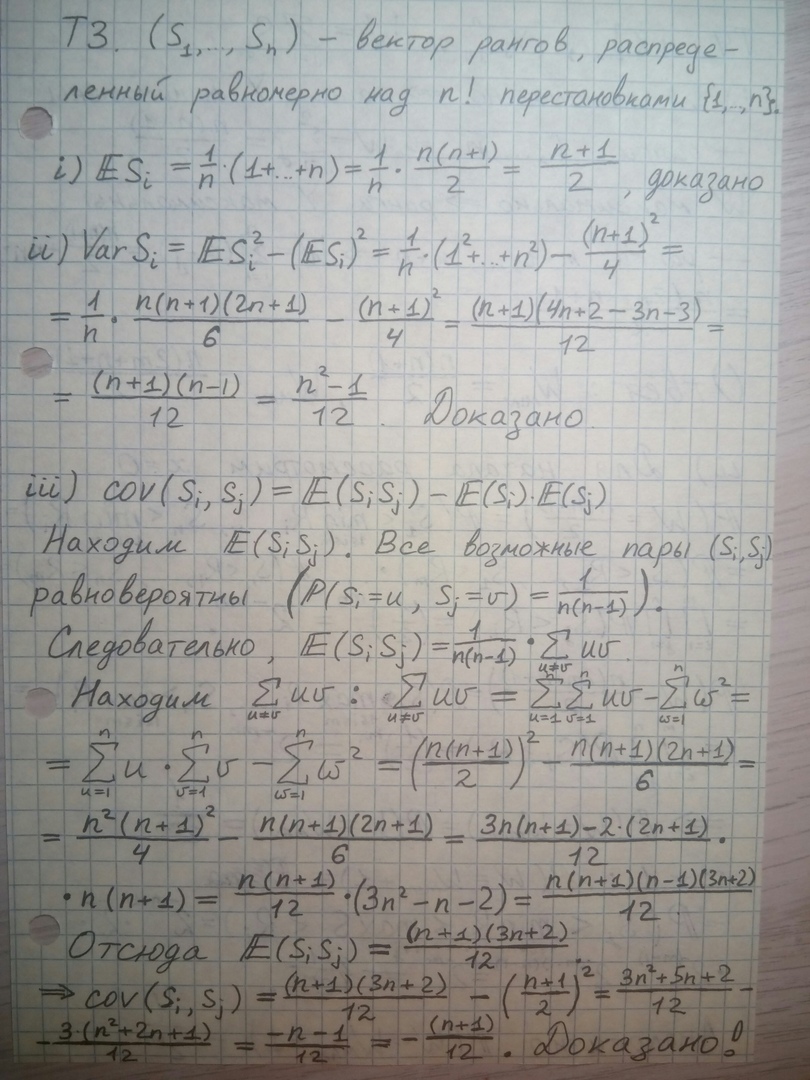 ТЗ. (S₁,.., Sₙ) – вектор рангов, распреде-
ленный равномерно над n! перестановками {1,..,n}.
i) 𝔼Sᵢ = 1/n·(1+...+n) = 1/n · n(n+1)/2 = (n+1)/2, доказано
ii) Var Sᵢ = 𝔼Sᵢ² – (𝔼Sᵢ)² = 1/n·(1²+...+n²) – (n+1)²/4 =
= 1/n · n(n+1)(2n+1)/6 – (n+1)²/4 = (n+1)(4n+2–3n–3)/12 =
= (n+1)(n–1)/12 = (n²–1)/12. Доказано.
iii) cov(Sᵢ, Sⱼ) = 𝔼(SᵢSⱼ) – 𝔼(Sᵢ)·𝔼(Sⱼ)
Находим 𝔼(SᵢSⱼ). Все возможные пары (Sᵢ,Sⱼ)
равновероятны (ℙ(Sᵢ=u, Sⱼ=v) = 1/(n(n–1))).
Следовательно, 𝔼(SᵢSⱼ) = 1/(n(n–1)) · Σ_{u≠v} uv.
Находим Σ_{u≠v} uv : Σ_{u≠v} uv = Σ_{u=1}^{n} Σ_{v=1}^{n} uv – Σ_{w=1}^{n} w² =
= Σ_{u=1}^{n} u · Σ_{v=1}^{n} v – Σ_{w=1}^{n} w² = (n(n+1)/2)² – n(n+1)(2n+1)/6 =
= n²(n+1)²/4 – n(n+1)(2n+1)/6 = (3n(n+1)–2·(2n+1))/12 ·
· n(n+1) = n(n+1)/12 · (3n²–n–2) = n(n+1)(n–1)(3n+2)/12.
Отсюда 𝔼(SᵢSⱼ) = (n+1)(3n+2)/12.
⇒ cov(Sᵢ, Sⱼ) = (n+1)(3n+2)/12 – ((n+1)/2)² = (3n²+5n+2)/12 –
– 3·(n²+2n+1)/12 = (–n–1)/12 = –(n+1)/12. Доказано!